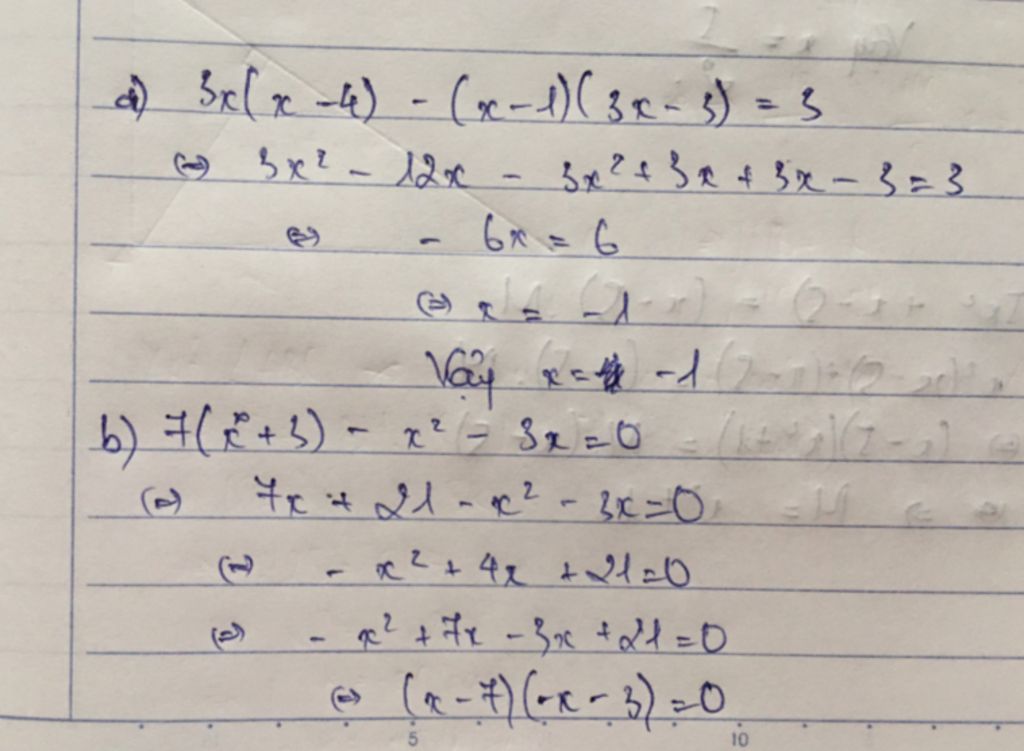 a) 3x(x - 4) - (x - 1)(3x - 3) = 3
(=) 3x² - 12x - 3x² + 3x + 3x - 3 = 3
(=) - 6x = 6
(=) x = -1
Vậy x = -1
b) 7(x + 3) - x² - 3x = 0
(=) 7x + 21 - x² - 3x = 0
(=) - x² + 4x + 21 = 0
(=) - x² + 7x - 3x + 21 = 0
(=) (x - 7)(-x - 3) = 0
5 10